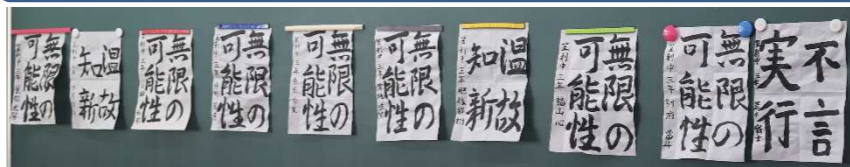 無限の
可能性
温故
知新
無限の
可能性
無限の
可能性
無限の
可能性
無限の
可能性
温故
知新
無限の
可能性
無限の
可能性
不言
実行